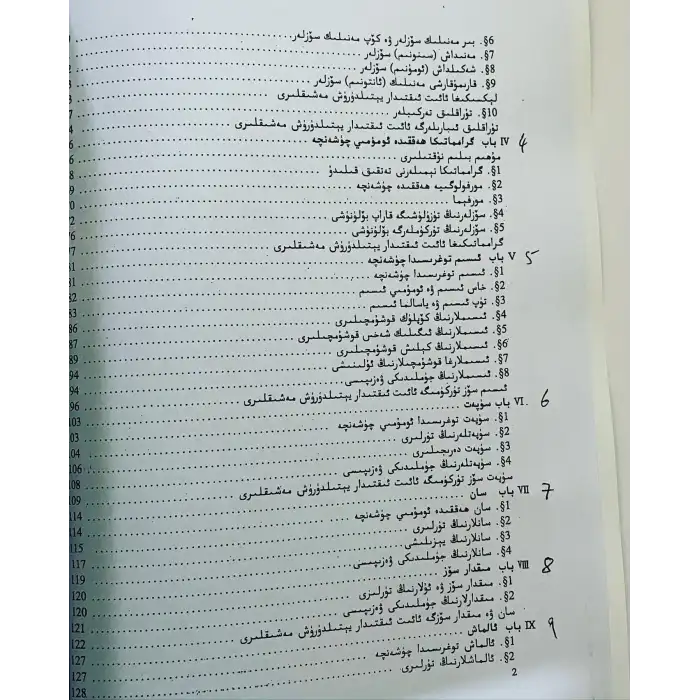 §6. بىر مەنىلىك سۆزلەر ۋە كۆپ مەنىلىك سۆزلەر
§7. مەنىداش (سىنونىم) سۆزلەر
§8. شەكىلداش (ئومۇنىم) سۆزلەر
§9. قارىمۇقارشى مەنىلىك (ئانتونىم) سۆزلەر
لېكسىكىغا ئائىت ئىقتىدار يېتىلدۈرۈش مەشىقلىرى
§10. تۇراقلىق تەركىبلەر
تۇراقلىق ئىبارىلەرگە ئائىت ئىقتىدار يېتىلدۈرۈش مەشىقلىرى
IV باب گرامماتىكا ھەققىدە ئومۇمىي چۈشەنچە 4
مۇھىم بىلىم نۇقتىلىرى
§1. گرامماتىكا نېمىلەرنى تەتقىق قىلىدۇ
§2. مورفولوگىيە ھەققىدە چۈشەنچە
§3. مورفېما
§4. سۆزلەرنىڭ تۈزۈلۈشىگە قاراپ بۆلۈنۈشى
§5. سۆزلەرنىڭ تۈركۈملەرگە بۆلۈنۈشى
گرامماتىكىغا ئائىت ئىقتىدار يېتىلدۈرۈش مەشىقلىرى
V باب ئىسىم توغرىسىدا چۈشەنچە 5
§1. ئىسىم توغرىسىدا چۈشەنچە
§2. خاس ئىسىم ۋە ئومۇمىي ئىسىم
§3. تۈپ ئىسىم ۋە ياسالما ئىسىم
§4. ئىسىملارنىڭ كۆپلۈك قوشۇمچىلىرى
§5. ئىسىملارنىڭ ئىگىلىك شەخس قوشۇمچىلىرى
§6. ئىسىملارنىڭ كېلىش قوشۇمچىلىرى
§7. ئىسىملارغا قوشۇمچىلارنىڭ ئۇلىنىشى
§8. ئىسىملارنىڭ جۈملىدىكى ۋەزىپىسى 94
ئىسىم سۆز تۈركۈمىگە ئائىت ئىقتىدار يېتىلدۈرۈش مەشىقلىرى 94
VI باب سۈپەت 96 6
§1. سۈپەت توغرىسىدا ئومۇمىي چۈشەنچە 103
§2. سۈپەتلەرنىڭ تۈرلىرى 03
§3. سۈپەت دەرىجىلىرى 04
§4. سۈپەتلەرنىڭ جۈملىدىكى ۋەزىپىسى 106
سۈپەت سۆز تۈركۈمىگە ئائىت ئىقتىدار يېتىلدۈرۈش مەشىقلىرى 108
VII باب سان 109 7
§1. سان ھەققىدە ئومۇمىي چۈشەنچە 114
§2. سانلارنىڭ تۈرلىرى 114
§3. سانلارنىڭ يېزىلىشى 115
§4. سانلارنىڭ جۈملىدىكى ۋەزىپىسى 117
VIII باب مىقدار سۆز 119 8
§1. مىقدار سۆز ۋە ئۇلارنىڭ تۈرلىرى 120
§2. مىقدارلارنىڭ جۈملىدىكى ۋەزىپىسى 120
سان ۋە مىقدار سۆزگە ئائىت ئىقتىدار يېتىلدۈرۈش مەشىقلىرى 121
IX باب ئالماش 122 9
§1. ئالماش توغرىسىدا چۈشەنچە 127
§2. ئالماشلارنىڭ تۈرلىرى 127
128
2